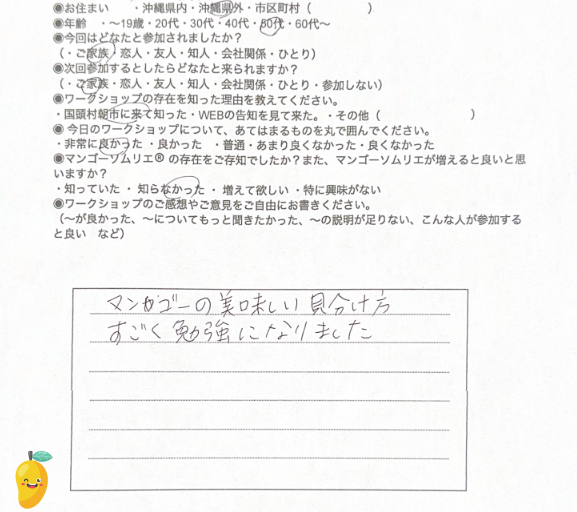 ◉お住まい ・沖縄県内・沖縄県外・市区町村（ ）
◉年齢 ・～19歳・20代・30代・40代・50代・60代～
◉今回はどなたと参加されましたか？
（・ご家族・恋人・友人・知人・会社関係・ひとり）
◉次回参加するとしたらどなたと来られますか？
（・ご家族・恋人・友人・知人・会社関係・ひとり・参加しない）
◉ワークショップの存在を知った理由を教えてください。
・国頭村朝市に来て知った・WEBの告知を見て来た。・その他（ ）
◉ 今日のワークショップについて、あてはまるものを丸で囲んでください。
・非常に良かった ・良かった ・普通・あまり良くなかった・良くなかった
◉マンゴーソムリエ® の存在をご存知でしたか？また、マンゴーソムリエが増えると良いと思
いますか？
・知っていた ・ 知らなかった ・ 増えて欲しい ・特に興味がない
◉ワークショップのご感想やご意見をご自由にお書きください。
（～が良かった、～についてもっと聞きたかった、～の説明が足りない、こんな人が参加する
と良い など）
マンゴーの美味しい見分け方
すごく勉強になりました